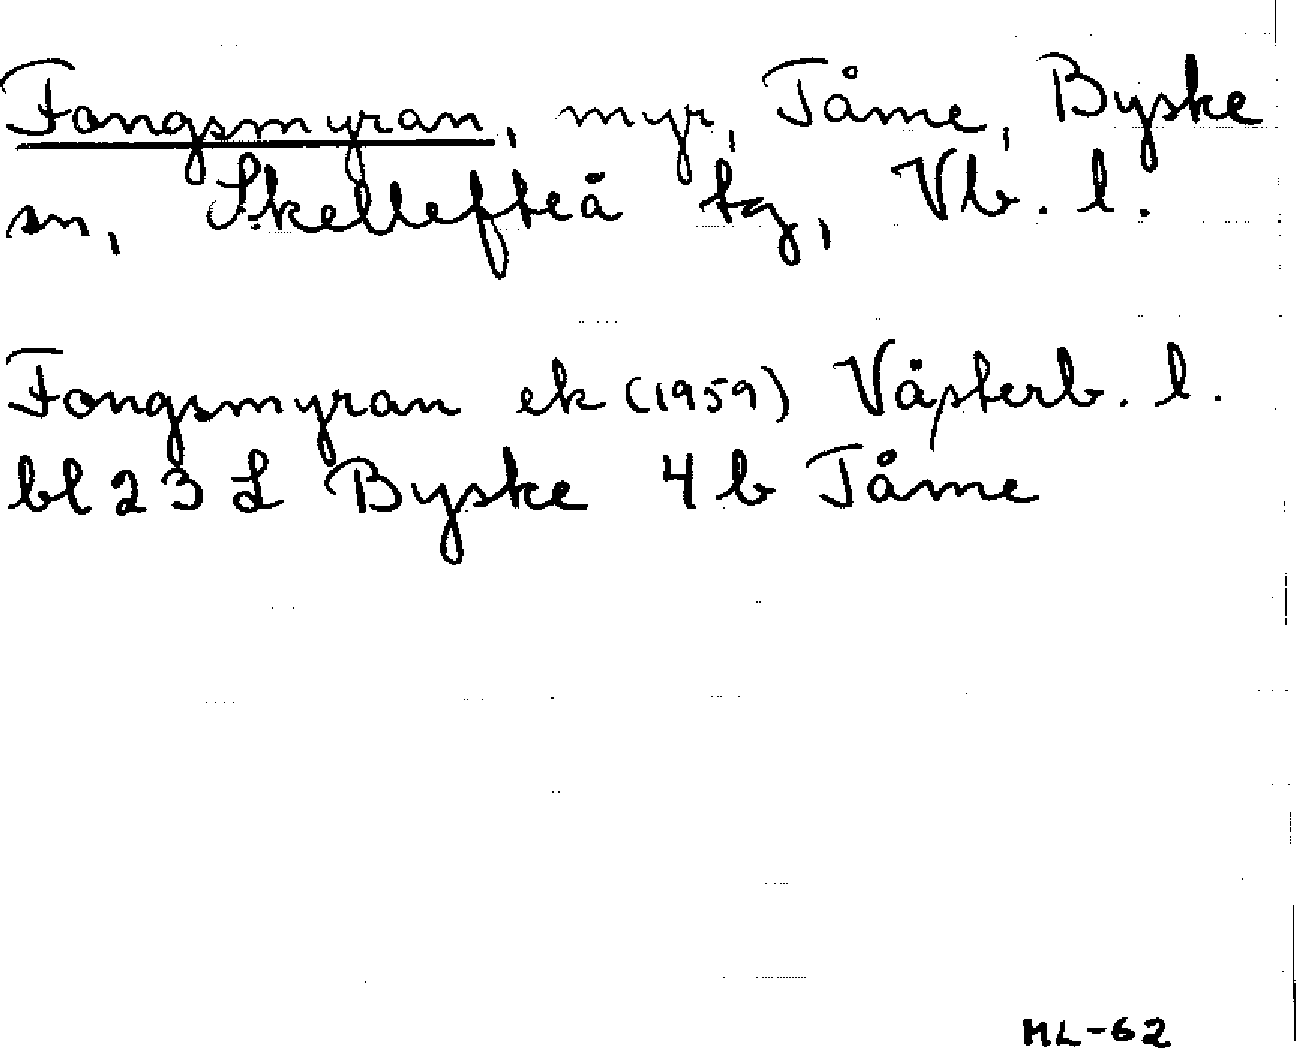 Fongsmyran, myr, Tåme, Byske
sn, Skellefteå tg, Vb. l.
Fongsmyran ek (1959) Västerb. l.
bl 23 L Byske 4 b Tåme
ML-62